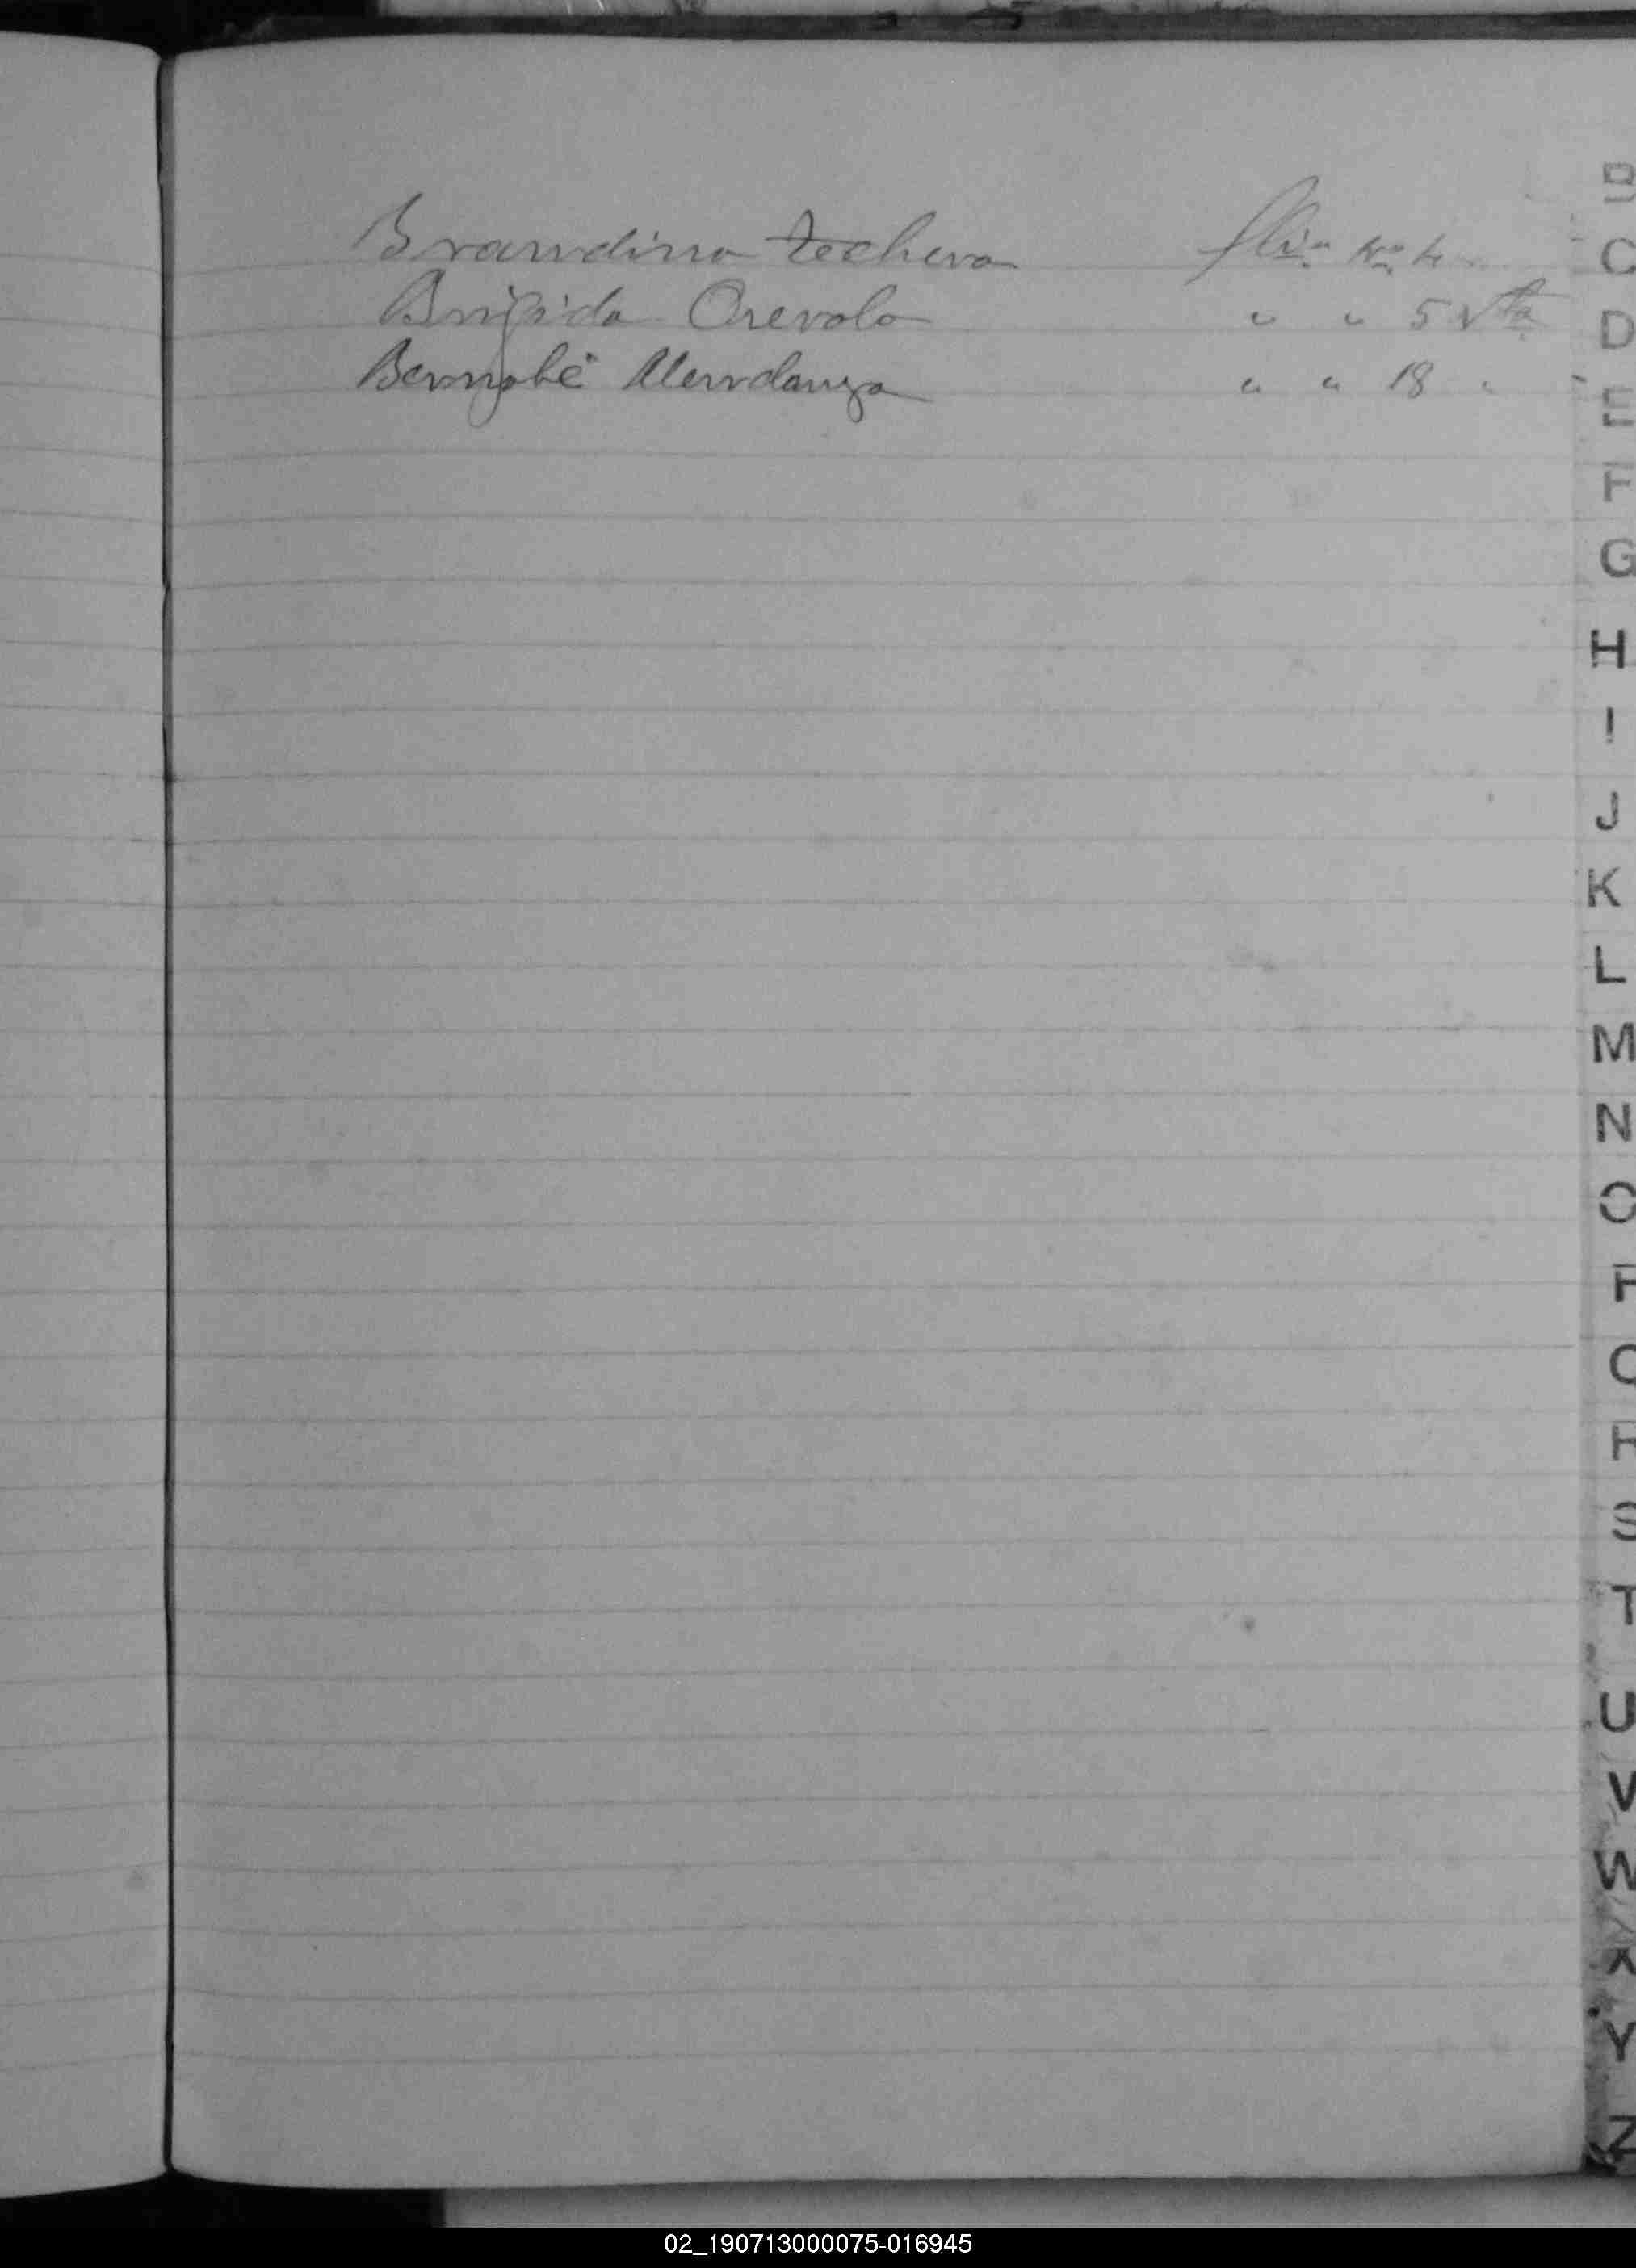 Brandina Techera flio. No. 4
Brijida Orevalo " " 5 vta
Bernabé Mendanga " " 18 "
B
C
D
E
F
G
H
I
J
K
L
M
N
O
P
Q
R
S
T
U
V
W
X
Y
Z
02_190713000075-016945